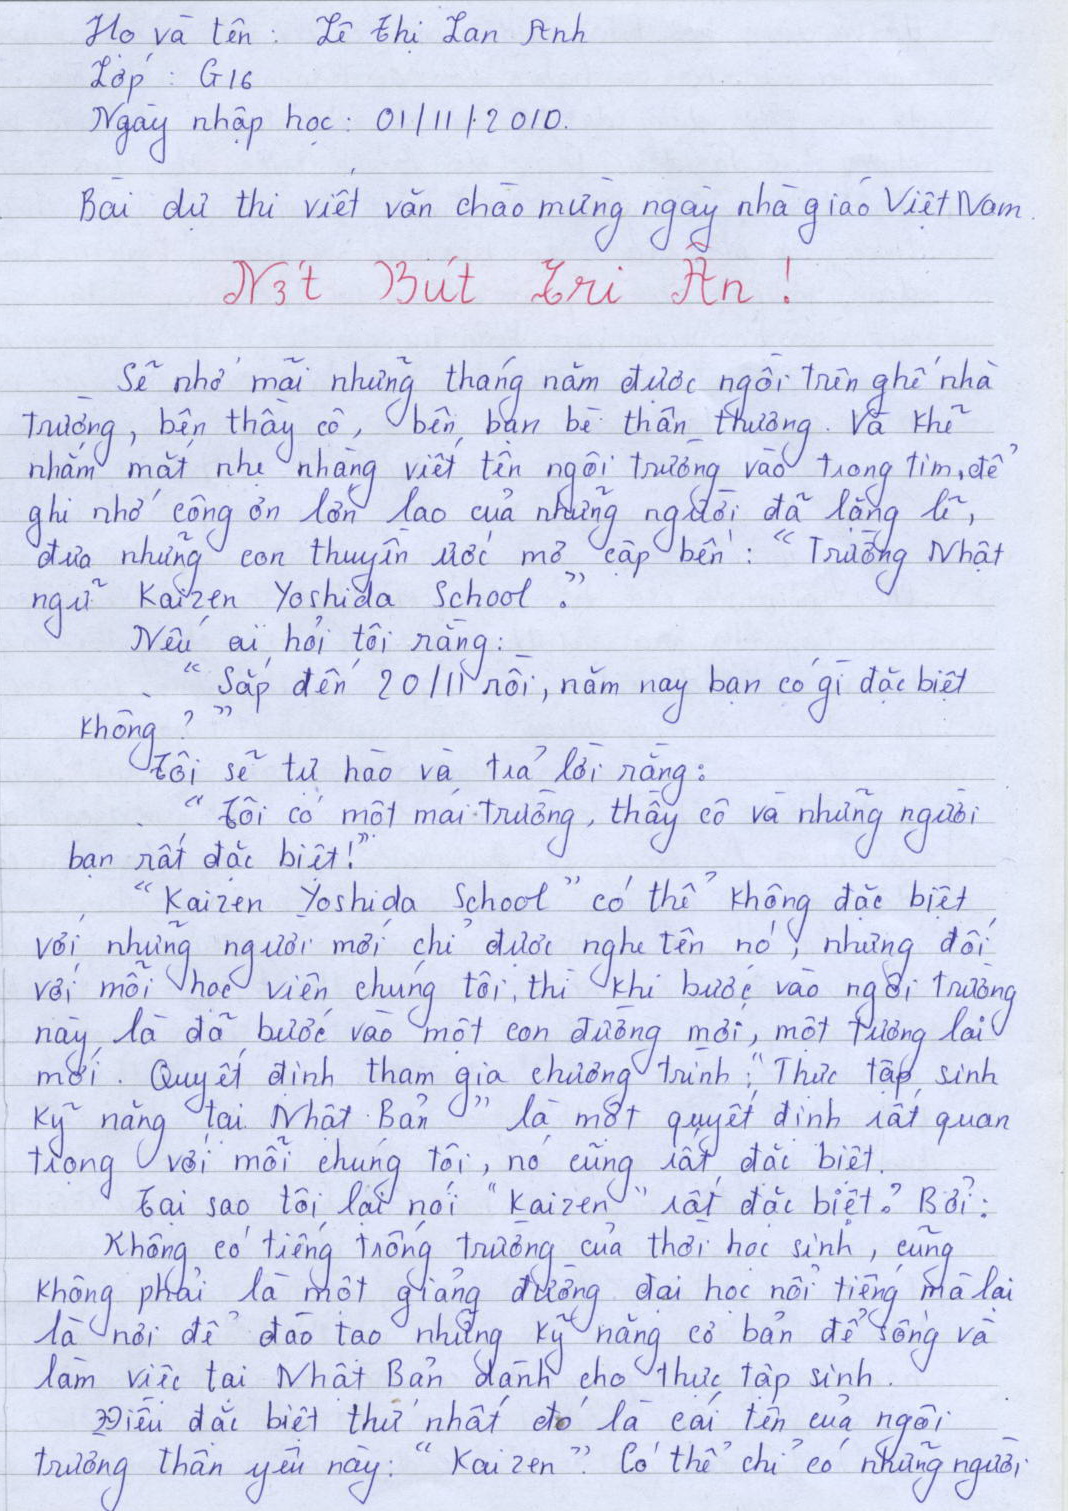 Họ và tên : Lê Thị Lan Anh
Lớp : G16
Ngày nhập học : 01/11/2010.
Bài dự thi viết văn chào mừng ngày nhà giáo Việt Nam.
Nét Bút Tri Ân !
Sẽ nhớ mãi những tháng năm được ngồi trên ghế nhà
trường, bên thầy cô, bên bạn bè thân thương. Và khẽ
nhắm mắt nhẹ nhàng viết tên ngôi trường vào trong tim, để
ghi nhớ công ơn lớn lao của những người đã lặng lẽ,
đưa những con thuyền ước mơ cập bến : " Trường Nhật
ngữ Kaizen Yoshida School ."
Nếu ai hỏi tôi rằng :
" Sắp đến 20/11 rồi, năm nay bạn có gì đặc biệt
không ? "
Tôi sẽ tự hào và trả lời rằng :
" Tôi có một mái trường, thầy cô và những người
bạn rất đặc biệt ! "
" Kaizen Yoshida School " có thể không đặc biệt
với những người mới chỉ được nghe tên nó, nhưng đối
với mỗi học viên chúng tôi, thì khi bước vào ngôi trường
này là đã bước vào một con đường mới, một tương lai
mới. Quyết định tham gia chương trình : " Thực tập sinh
kỹ năng tại Nhật Bản " là một quyết định rất quan
trọng với mỗi chúng tôi, nó cũng rất đặc biệt.
Tại sao tôi lại nói " Kaizen " rất đặc biệt ? Bởi :
Không có tiếng trống trường của thời học sinh, cũng
không phải là một giảng đường đại học nổi tiếng mà lại
là nơi để đào tạo những kỹ năng cơ bản để sống và
làm việc tại Nhật Bản dành cho thực tập sinh.
Điều đặc biệt thứ nhất đó là cái tên của ngôi
trường thân yêu này : " Kaizen ". Có thể chỉ có những người